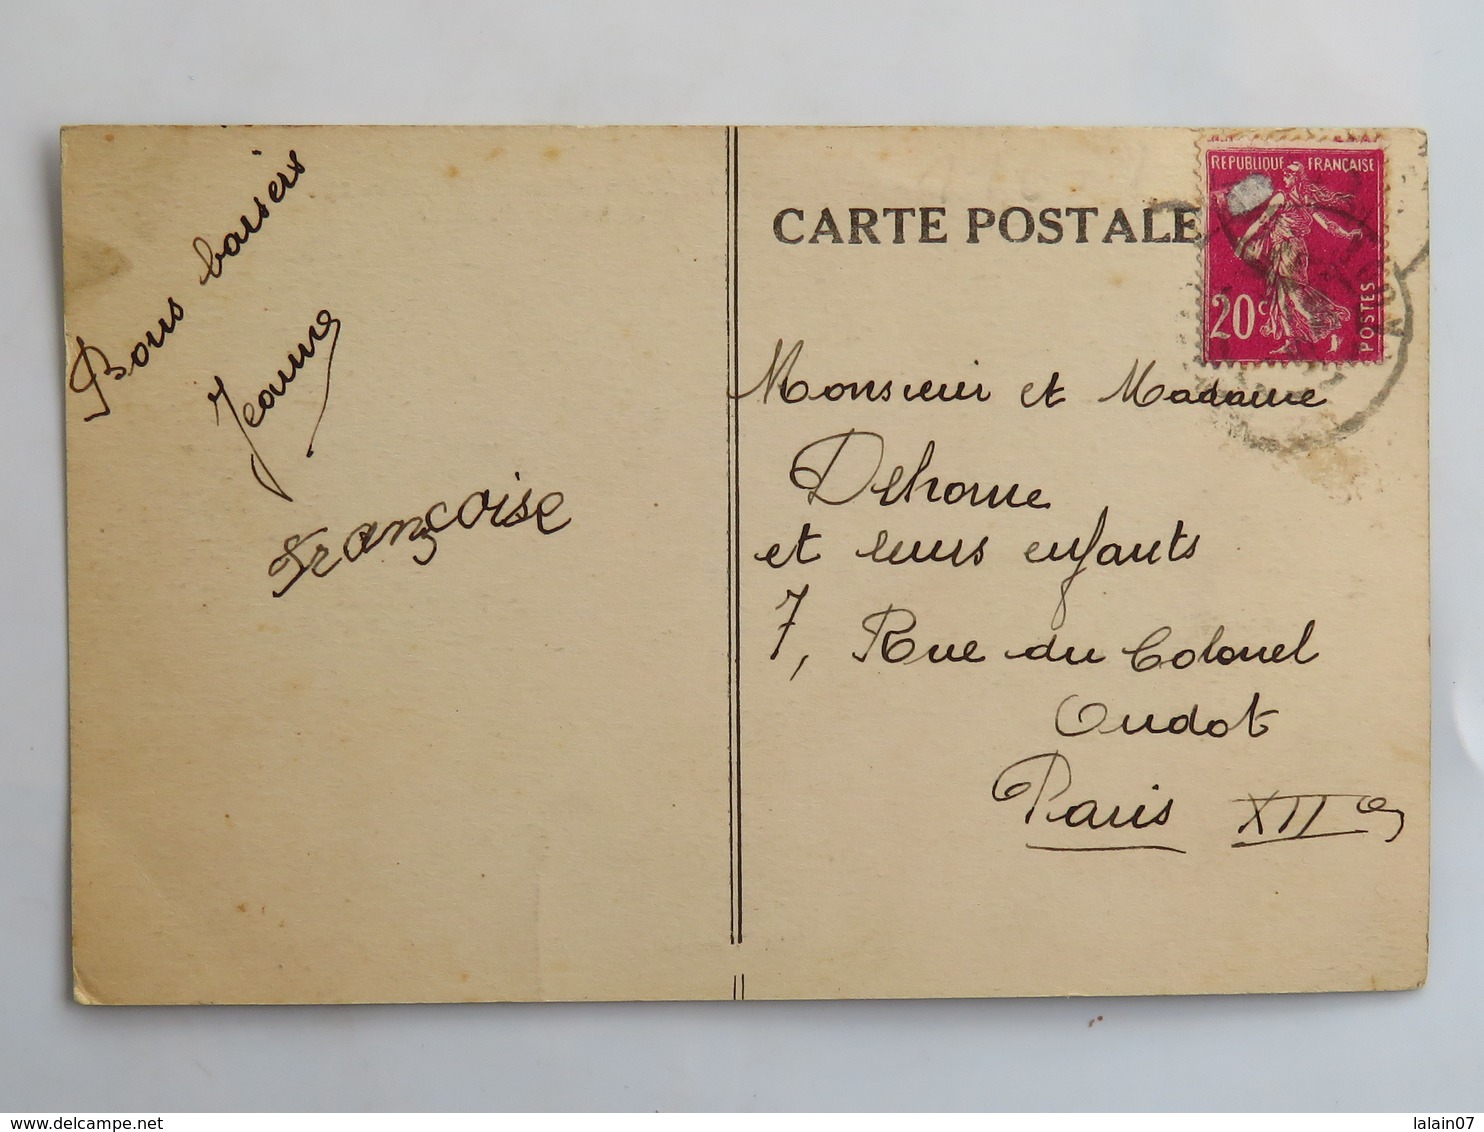 Bons baisers
Jeanne
Françoise
CARTE POSTALE
REPUBLIQUE FRANÇAISE
20c
POSTES
Monsieur et Madame
Dehorne
et leurs enfants
7, Rue du Colonel
Oudot
Paris XIIe
lalain07